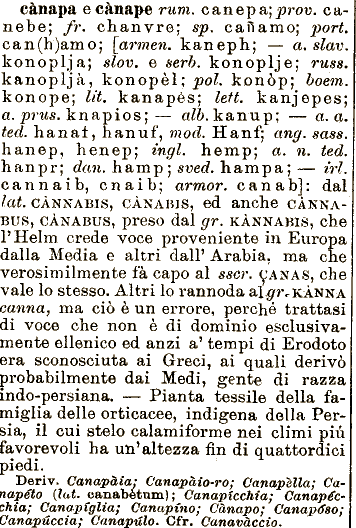 cànapa e cànape rum. canepa; prov. ca-
nebe; fr. chanvre; sp. cañamo; port.
can(h)amo; [armen. kaneph; — a. slav.
konoplja; slov. e serb. konoplje; russ.
kanopljà, konopèl; pol. konòp; boem.
konope; lit. kanapés; lett. kanjepes;
a. prus. knapios; — alb. kanup; — a. a.
ted. hanat, hanuf, mod. Hanf; ang. sass.
hanep, henep; ingl. hemp; a. n. ted.
hanpr; dan. hamp; sved. hampa; — irl.
cannaib, cnaib; armor. canab]: dal
lat. CÀNNABIS, CÀNABIS, ed anche CÀNNA-
BUS, CÀNABUS, preso dal gr. KÀNNABIS, che
l'Helm crede voce proveniente in Europa
dalla Media e altri dall'Arabia, ma che
verosimilmente fà capo al sscr. ÇANAS, che
vale lo stesso. Altri lo rannoda al gr. KÀNNA
canna, ma ciò è un errore, perché trattasi
di voce che non è di dominio esclusiva-
mente ellenico ed anzi a' tempi di Erodoto
era sconosciuta ai Greci, ai quali derivò
probabilmente dai Medi, gente di razza
indo-persiana. — Pianta tessile della fa-
miglia delle orticacee, indigena della Per-
sia, il cui stelo calamiforme nei climi più
favorevoli ha un'altezza fin di quattordici
piedi.
Deriv. Canapàia; Canapàio-ro; Canapèlla; Ca-
napéto (lat. canabétum); Canapicchia; Canapéc-
chia; Canapíglia; Canapíno; Cànapo; Canapóso;
Canapúccia; Canapúlo. Cfr. Canavàccio.